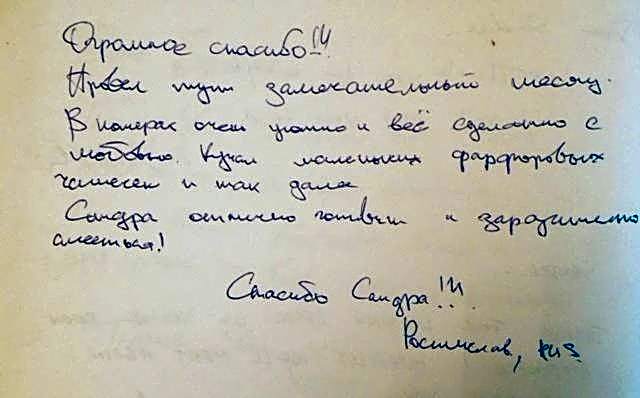 Огромное спасибо!!!
Провел тут замечательный месяц.
В номерах очен уютно и всё сделанно с
любовью. Куча маленьких фарфоровых
чашечек и так дале
Сандра отлично готовит и заразительно
смеёться!
Спасибо Сандра!!!
Ростислав,